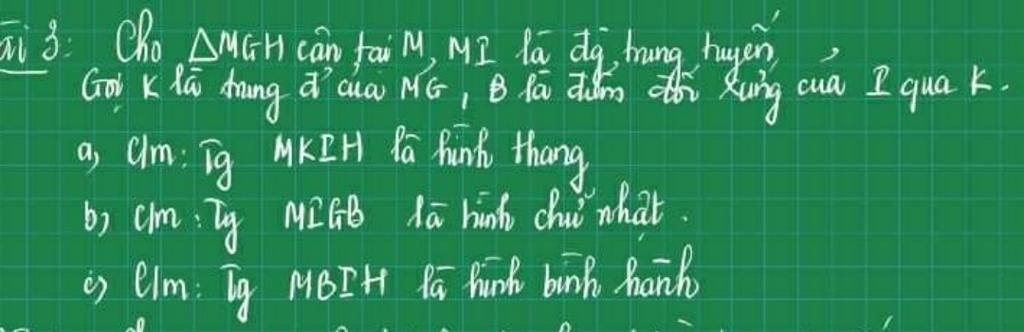 ài 3: Cho ΔMGH cân tại M, MI là đg trung tuyến,
Gọi K là trung đ' của MG, B là điểm đối xứng của I qua K.
a, C/m: Tg MKIH là hình thang
b, C/m: Tg MIGB là hình chữ nhật.
c, C/m: Tg MBIH là hình bình hành